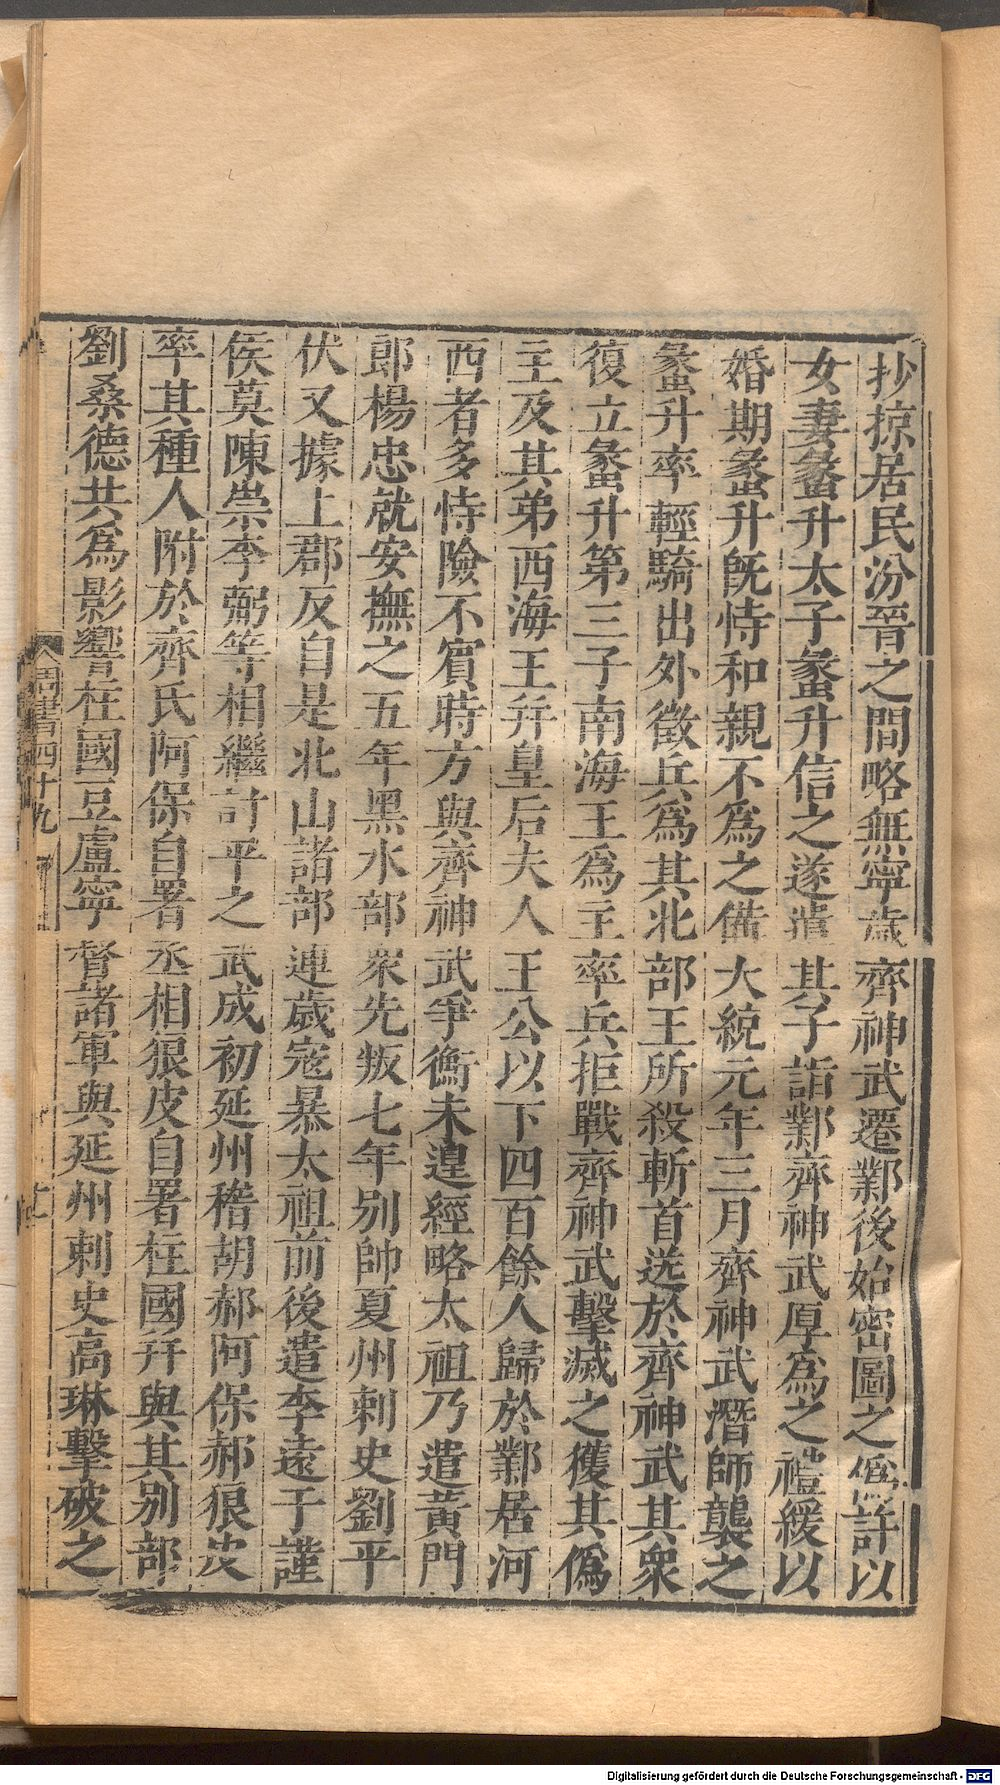 抄掠居民汾晉之間略無寧歲齊神武遷鄴後始密圖之僞許以
女妻蠡升太子蠡升信之遂遣其子詣鄴齊神武厚爲之禮緩以
婚期蠡升旣恃和親不爲之備大統元年三月齊神武潛師襲之
蠡升率輕騎出外徵兵爲其北部王所殺斬首送於齊神武其衆
復立蠡升第三子南海王爲主率兵拒戰齊神武擊滅之獲其僞
主及其弟西海王幷皇后夫人王公以下四百餘人歸於鄴居河
西者多恃險不賓時方與齊神武爭衡未遑經略太祖乃遣黃門
郎楊忠就安撫之五年黑水部衆先叛七年別帥夏州刺史劉平
伏又據上郡反自是北山諸部連歲寇暴太祖前後遣李遠于謹
侯莫陳崇李弼等相繼討平之武成初延州稽胡郝阿保郝狠皮
率其種人附於齊氏阿保自署丞相狠皮自署柱國幷與其別部
劉桑德共爲影響柱國豆盧寧督諸軍與延州刺史高琳擊破之
周書四十九
十二
Digitalisierung gefördert durch die Deutsche Forschungsgemeinschaft - DFG